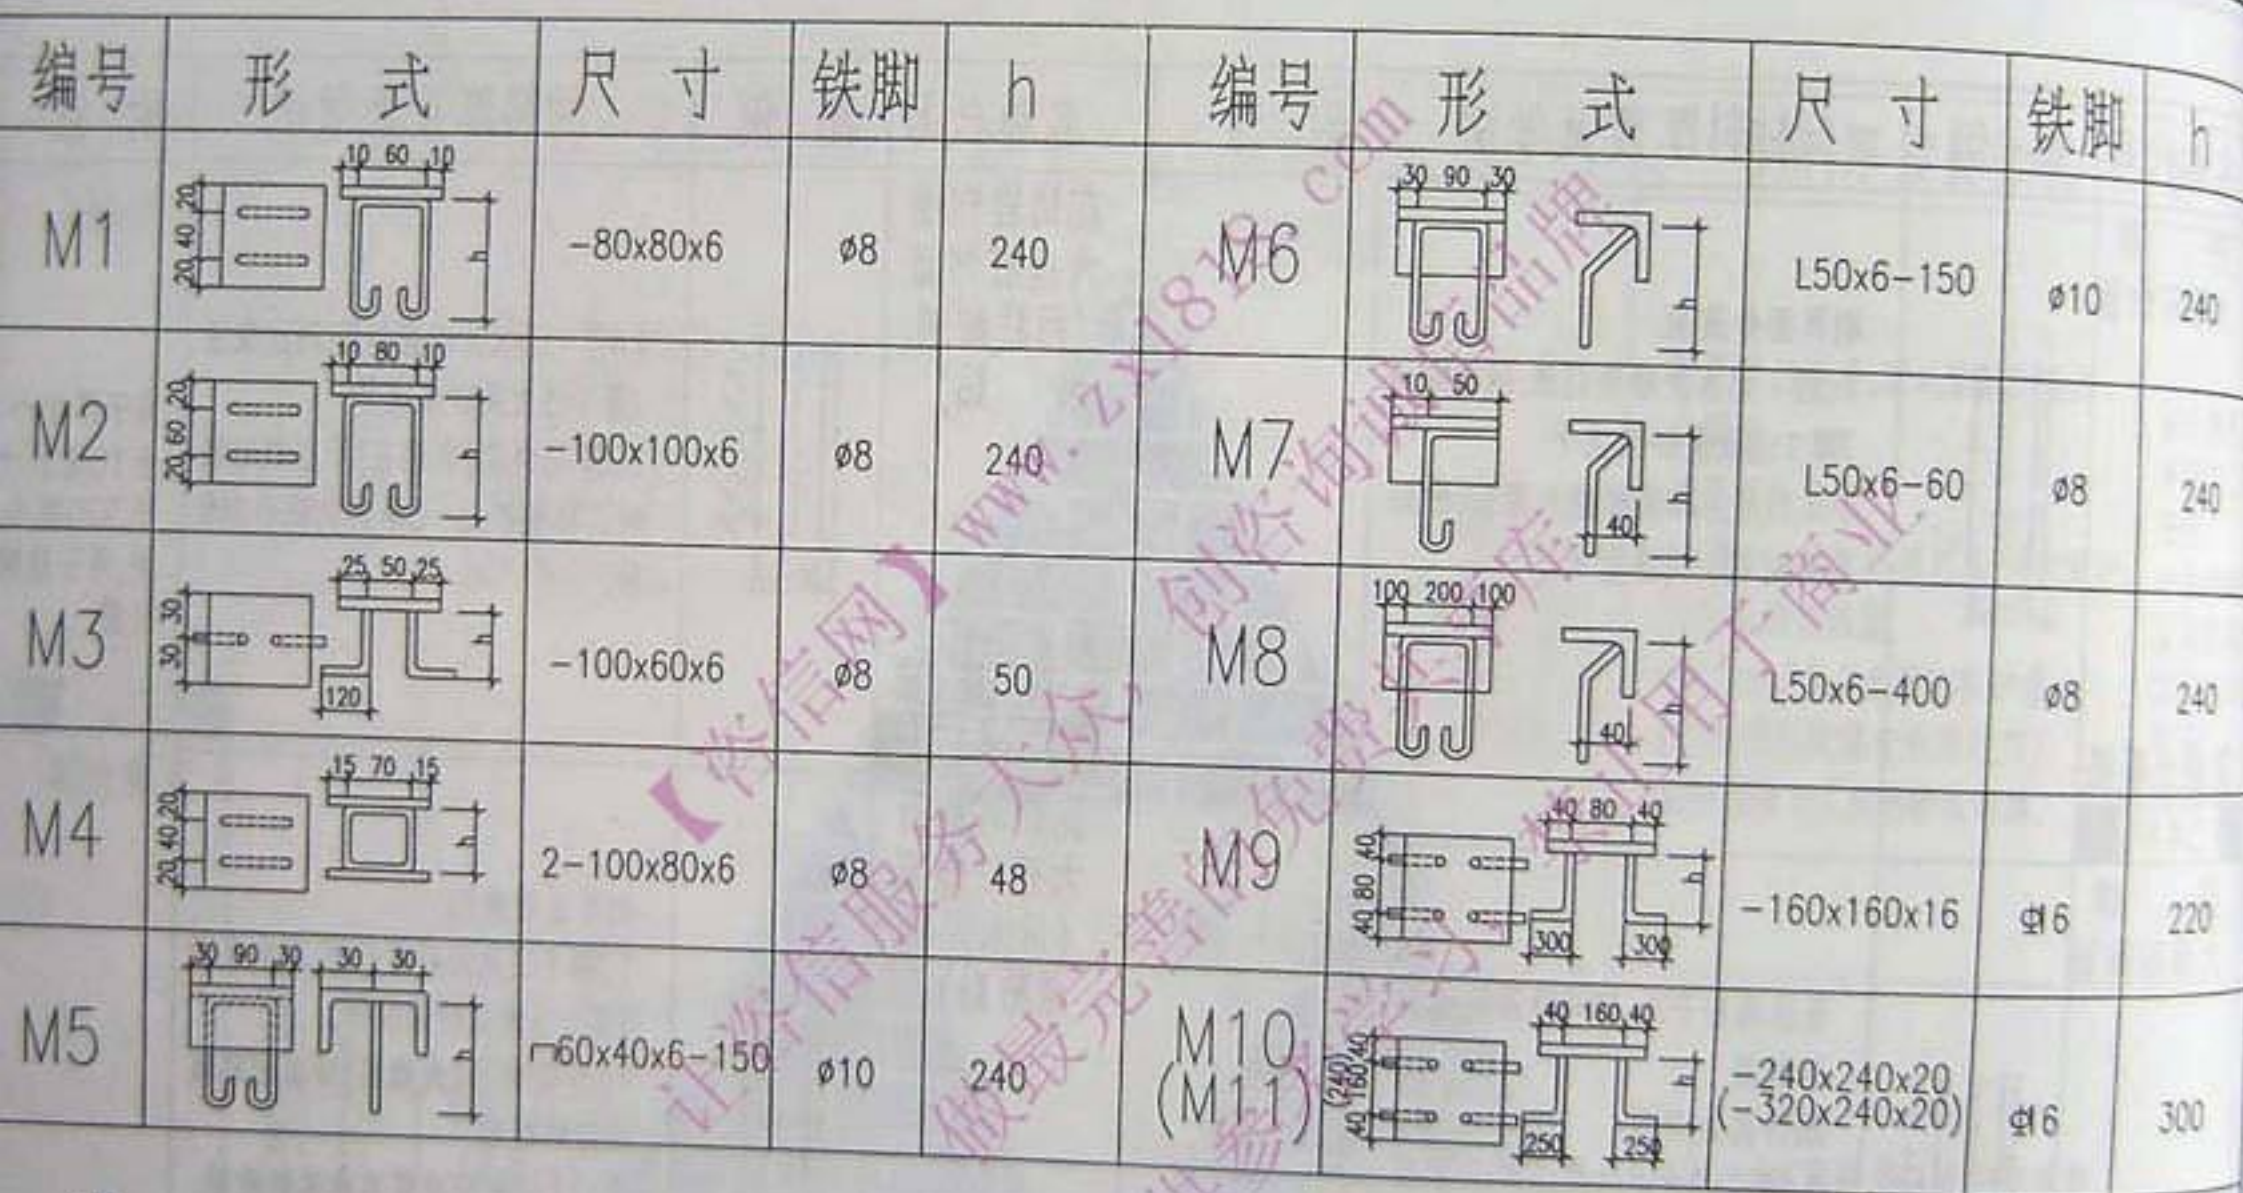 编号 形 式 尺 寸 铁脚 h 编号 形 式 尺 寸 铁脚 h
M1 20 40 20 10 60 10 h -80x80x6 ø8 240
M6 30 90 30 h L50x6-150 ø10 240
M2 20 60 20 10 80 10 h -100x100x6 ø8 240
M7 10 50 40 h L50x6-60 ø8 240
M3 30 30 25 50 25 120 h -100x60x6 ø8 50
M8 100 200 100 40 h L50x6-400 ø8 240
M4 20 40 20 15 70 15 h 2-100x80x6 ø8 48
M9 40 80 40 40 80 40 300 300 h -160x160x16 Φ16 220
M5 30 90 30 30 30 h ⌐60x40x6-150 ø10 240
M10 40 160 40 40 160 40 250 250 h -240x240x20 Φ16 300
(M11) (240) (-320x240x20)
【咨信网】 www.zx1818.com
让咨信服务大众, 创咨询品牌
做最完善的免费 库
参 学习, 禁止用于商业